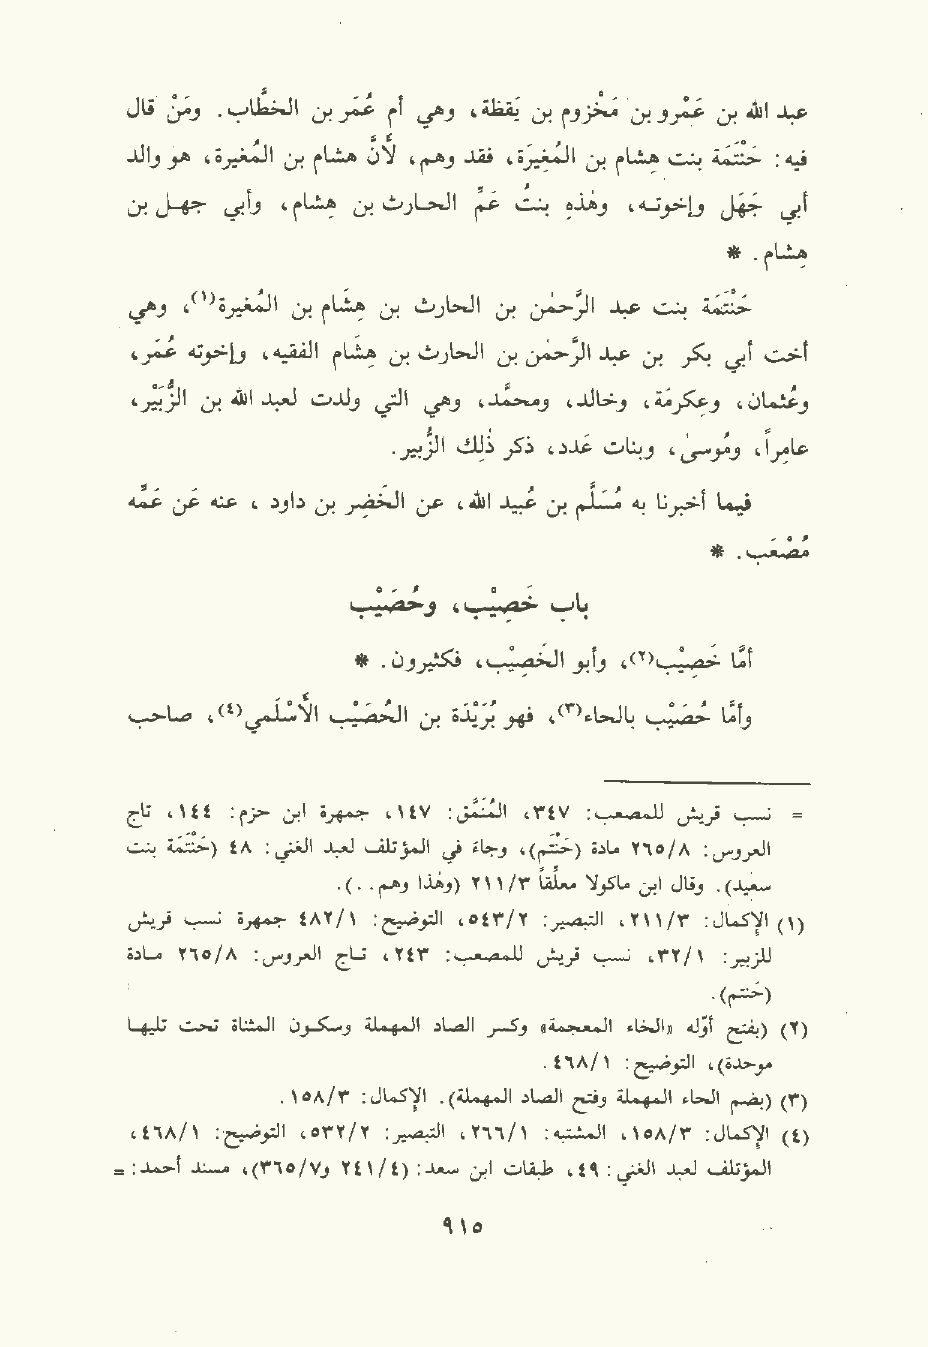 عبد الله بن عَمْرو بن مَخْزوم بن يَقظة، وهي أم عُمَر بن الخطَّاب. ومَنْ قال
فيه: حَنْتَمَة بنت هِشام بن المُغِيرَة، فقد وهم، لأَنَّ هشام بن المُغيرة، هو والد
أبي جَهَل وإخوتـه، وهٰذِه بنتُ عَمِّ الحـارث بن هِشام، وأبي جهـل بن
هِشام. *
حَنْتَمَة بنت عبد الرَّحمٰن بن الحارث بن هِشَام بن المُغيرة(١)، وهي
أخت أبي بكر بن عبد الرَّحمٰن بن الحارث بن هِشَام الفقيه، وإخوته عُمَر،
وعُثمان، وعِكرمَة، وخالد، ومحمَّد، وهي التي ولدت لعبد الله بن الزُّبَيْر،
عامِراً، ومُوسىٰ، وبنات عَدد، ذكر ذٰلِك الزُّبير.
فيما أخبرنا به مُسَلَّم بن عُبيد الله، عن الخَضِر بن داود ، عنه عَن عَمِّه
مُصْعَب. *
باب خَصِيْب، وحُصَيْب
أمَّا خَصِيْب(٢)، وأبو الخَصِيْب، فكثيرون. *
وأمَّا حُصَيْب بالحاء(٣)، فهو بُرَيْدَة بن الحُصَيْب الأَسْلَمي(٤)، صاحب
= نسب قريش للمصعب: ٣٤٧، المُنَمَّق: ١٤٧، جمهرة ابن حزم: ١٤٤، تاج
العروس: ٢٦٥/٨ مادة (حَنْتَم)، وجاء في المؤتلف لعبد الغني: ٤٨ (حَنْتَمَة بنت
سعيد). وقال ابن ماكولا معلِّقاً ٢١١/٣ (وهٰذا وهم. .).
(١) الإكمال: ٢١١/٣، التبصير: ٥٤٣/٢، التوضيح: ٤٨٢/١ جمهرة نسب قريش
للزبير: ٣٢/١، نسب قريش للمصعب: ٢٤٣، تـاج العروس: ٢٦٥/٨ مـادة
(حَنتم).
(٢) (بفتح أوّله «الخاء المعجمة» وكسر الصاد المهملة وسكـون المثناة تحت تليهـا
موحدة)، التوضيح: ٤٦٨/١.
(٣) (بضم الحاء المهملة وفتح الصاد المهملة). الإكمال: ١٥٨/٣.
(٤) الإكمال: ١٥٨/٣، المشتبه: ٢٦٦/١، التبصير: ٥٣٢/٢، التوضيح: ٤٦٨/١،
المؤتلف لعبد الغني: ٤٩، طبقات ابن سعد: (٢٤١/٤ و٣٦٥/٧)، مسند أحمد: =
٩١٥